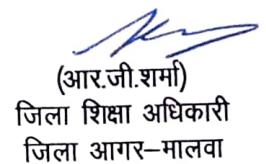 (आर.जी.शर्मा)
जिला शिक्षा अधिकारी
जिला आगर–मालवा